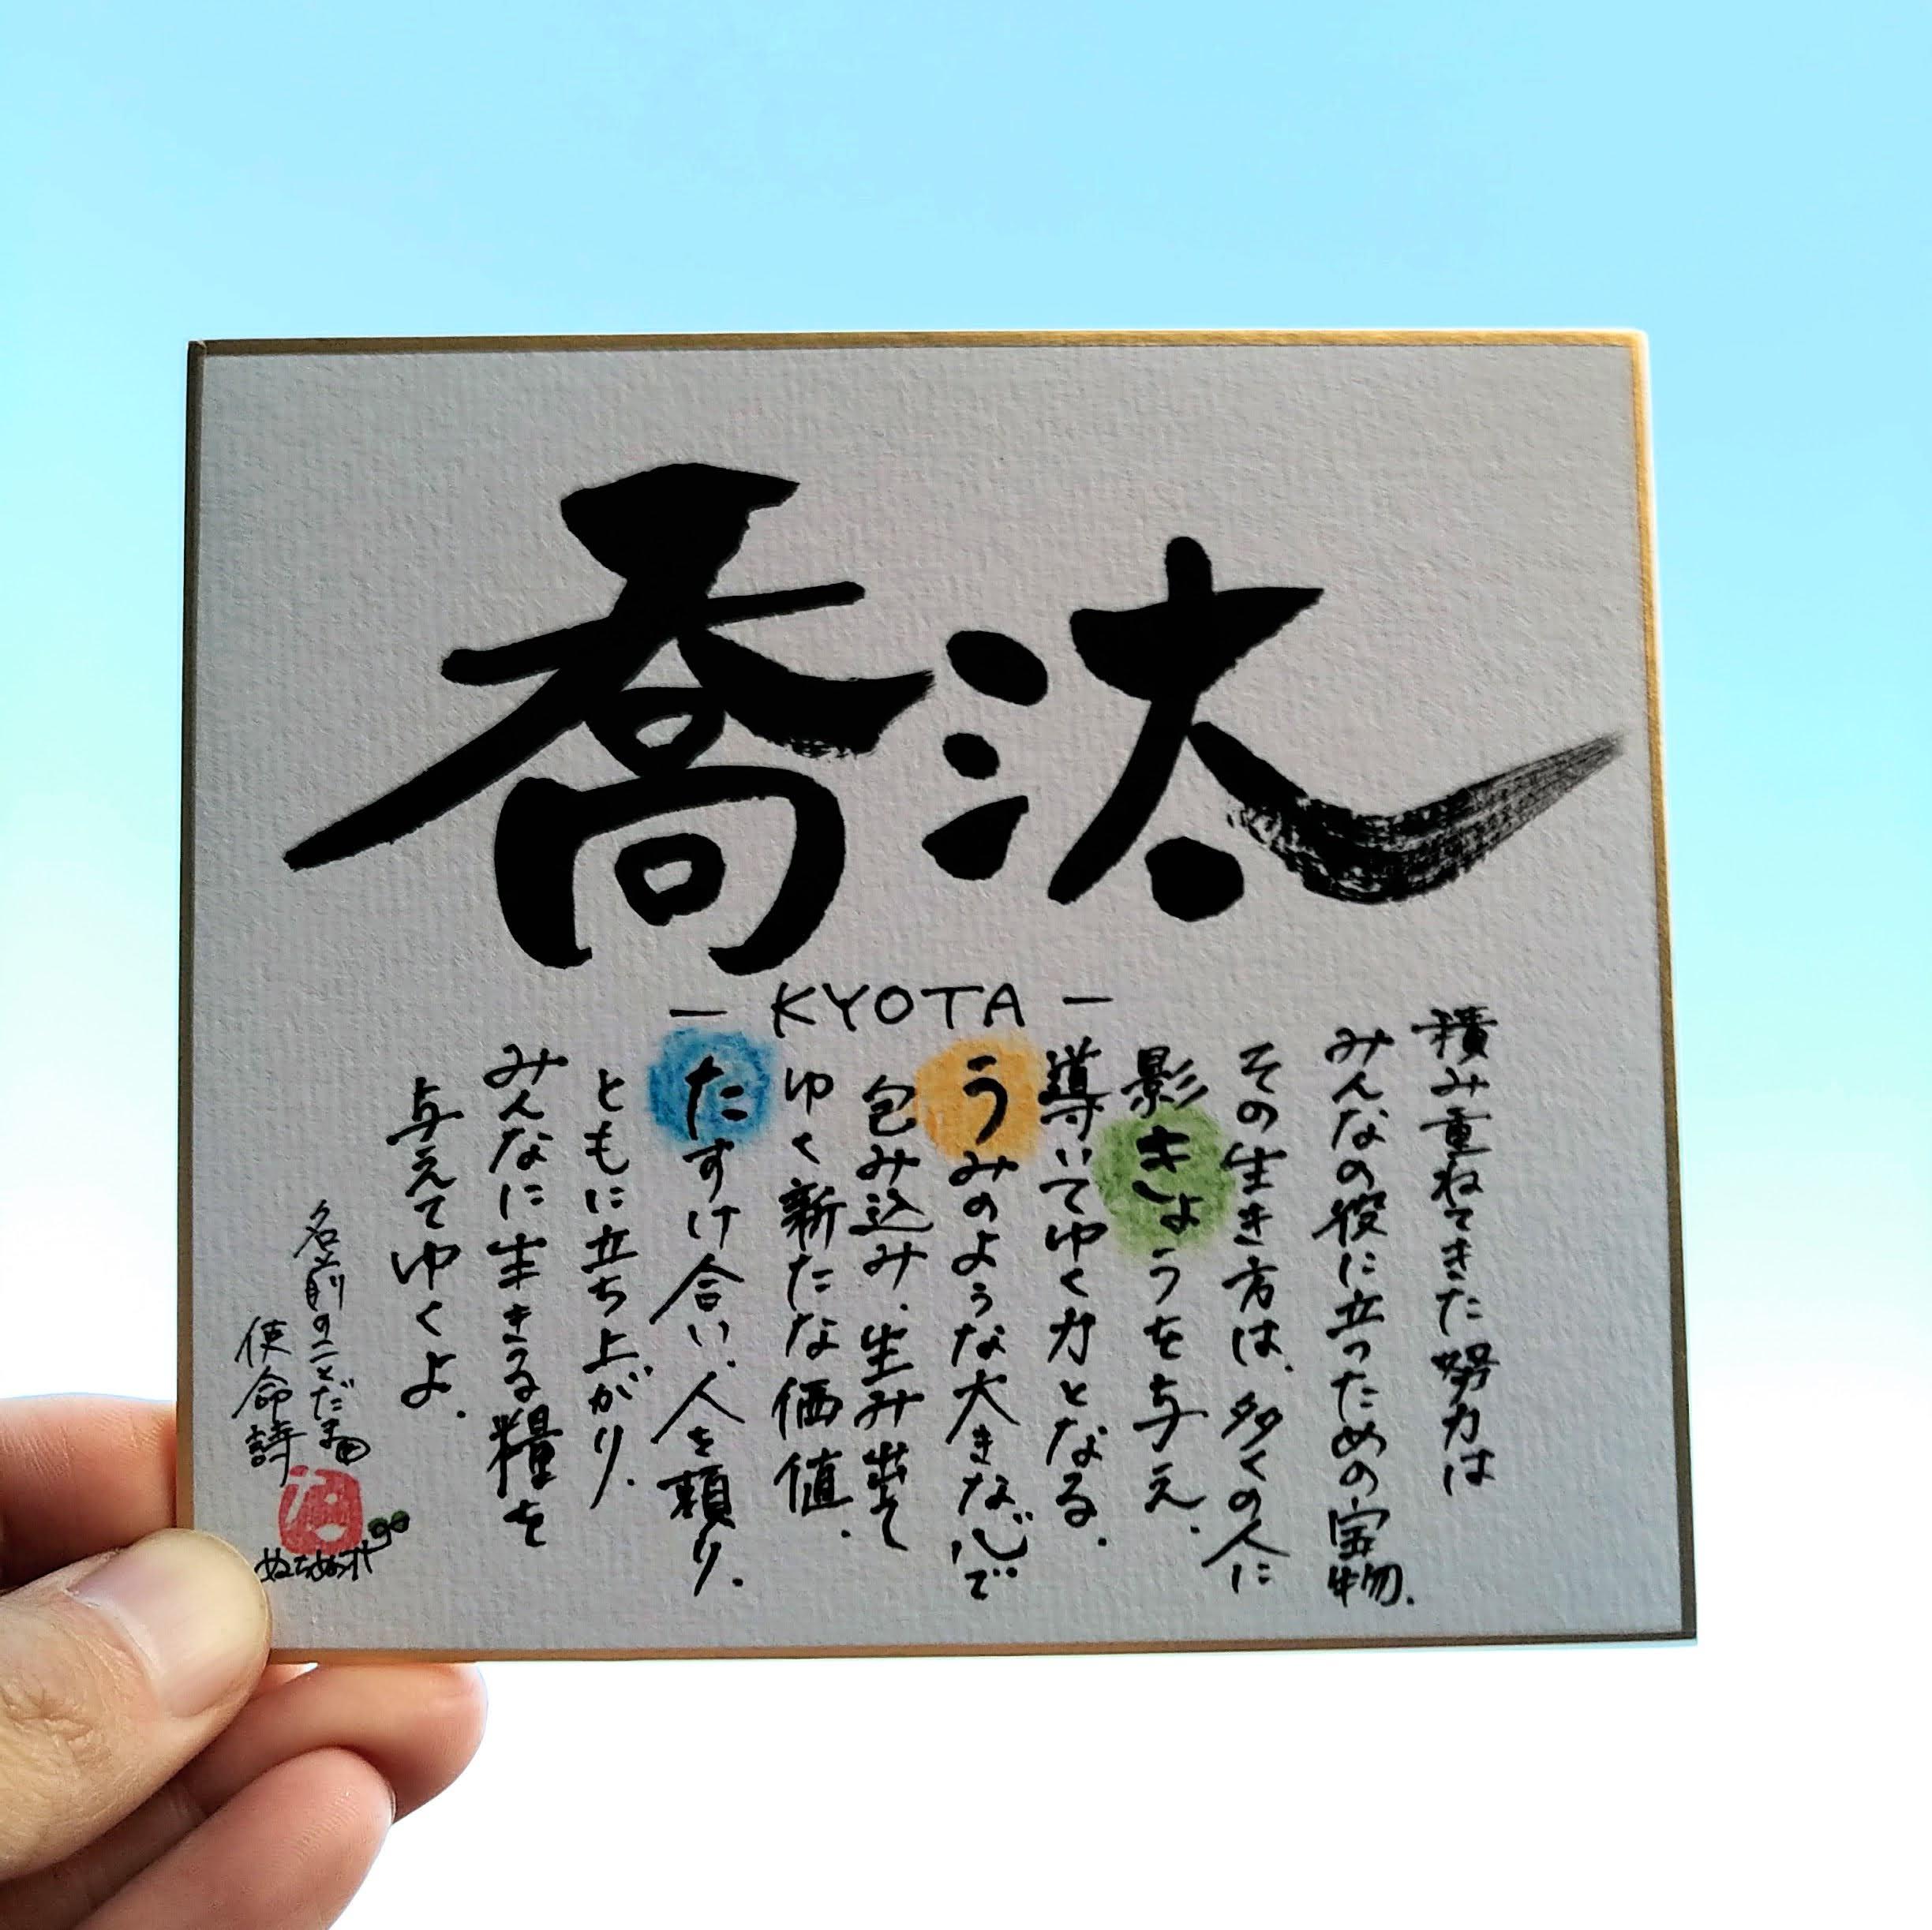 喬汰
— KYOTA —
積み重ねてきた努力は
みんなの役に立つための宝物.
その生き方は、多くの人に
影きょうを与え、
導いてゆく力となる.
うみのような大きな心で
包み込み、生み出して
ゆく新たな価値.
たすけ合い、人を頼り、
ともに立ち上がり、
みんなに生きる糧を
与えてゆくよ.
名前のことだま
使命詩